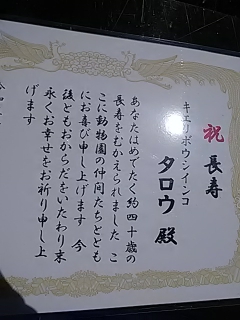 祝 長寿
キエリボウシインコ
タロウ 殿
あなたはめでたく約四十歳の
長寿をむかえられました こ
こに動物園の仲間たちととも
にお喜び申し上げます 今
後ともおからだをいたわり末
永くお幸せをお祈り申し上
げます